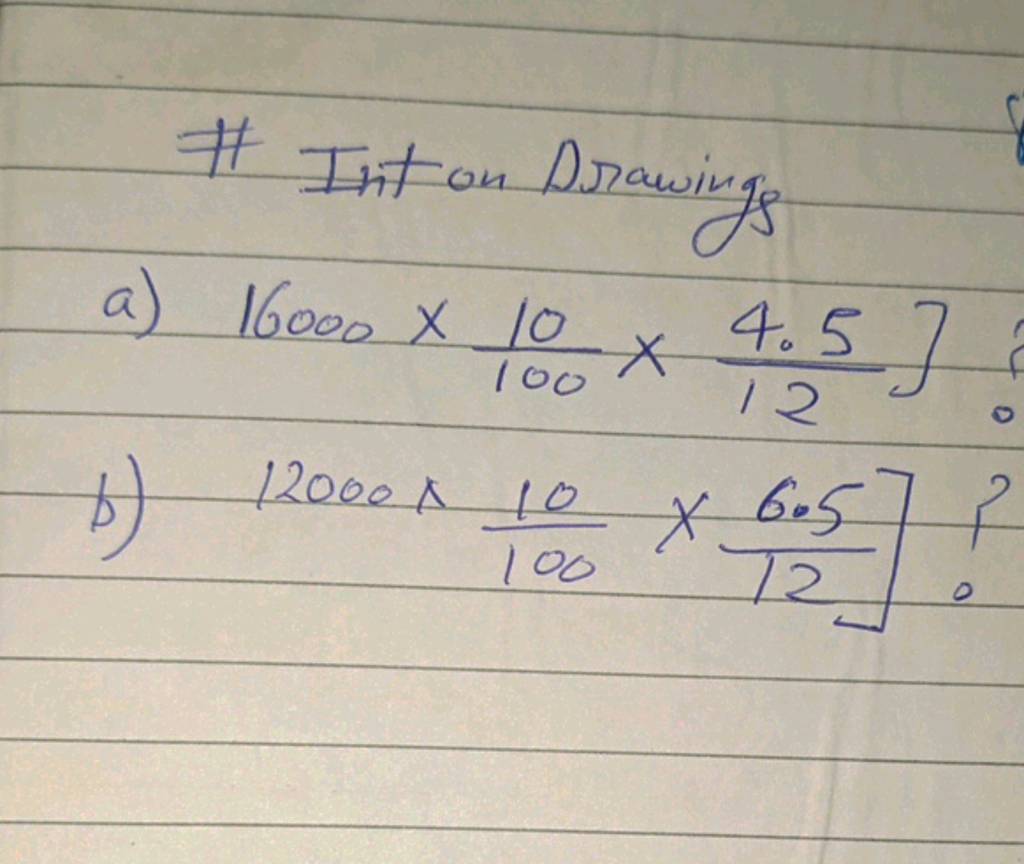 # Int on Drawings
a) 16000 × 10/100 × 4.5/12 ] ?
b) 12000 × 10/100 × 6.5/12 ] ?